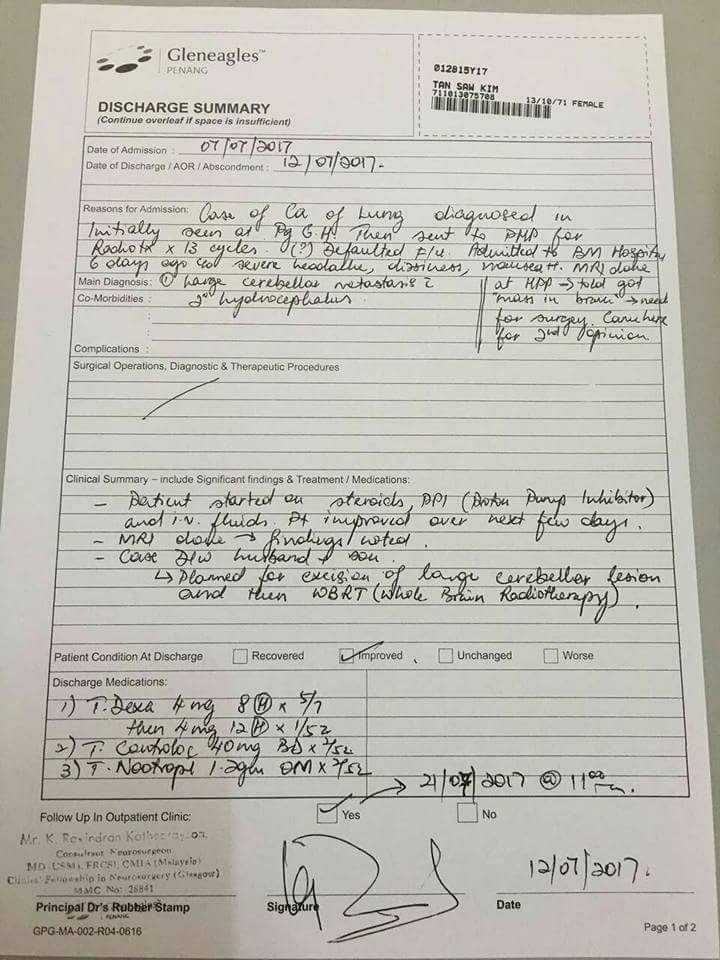 Gleneagles™
PENANG
DISCHARGE SUMMARY
(Continue overleaf if space is insufficient)
012815Y17
TAN SAW KIM
711013075708
13/10/71 FEMALE
Date of Admission : 07/07/2017
Date of Discharge / AOR / Abscondment : 12/07/2017.
Reasons for Admission: Case of Ca of Lung diagnosed in
Initially seen at Pg G.H. Then sent to PMP for
Radiotx x 13 cycles. (?) Defaulted F/u. Admitted to BM Hospital
6 days ago severe headache, dizziness, nausea. MRI done
Main Diagnosis: ① Large cerebellar metastasis
at HPP → told got
Co-Morbidities : 2° hydrocephalus.
"mass in brain" → need
for surgery. Came here
for 2nd opinion
Complications :
Surgical Operations, Diagnostic & Therapeutic Procedures
Clinical Summary – include Significant findings & Treatment / Medications:
– Patient started on steroids, PPI (Proton Pump Inhibitor)
and i.v. fluids. Pt improved over next few days.
– MRI done → findings noted.
– Case D/W husband + son
↳ Planned for excision of large cerebellar lesion
and then WBRT (Whole Brain Radiotherapy).
Patient Condition At Discharge Recovered Improved Unchanged Worse
Discharge Medications:
1) T. Dexa 4mg 8 H x 5/7
then 4mg 12 H x 1/52
2) T. Controloc 40mg BD x 2/52
3) T. Nootropil 1.2gm OM x 2/52
→ 21/07/2017 @ 11 00
Follow Up In Outpatient Clinic: Yes No
Mr. K. Ravindran Katheerayson
Consultant Neurosurgeon
MD (USM), FRCSI, CMIA (Malaysia)
Clinical Fellowship in Neurosurgery (Glasgow)
MMC No: 28841
12/07/2017.
Principal Dr's Rubber Stamp Signature Date
PENANG
GPG-MA-002-R04-0616
Page 1 of 2